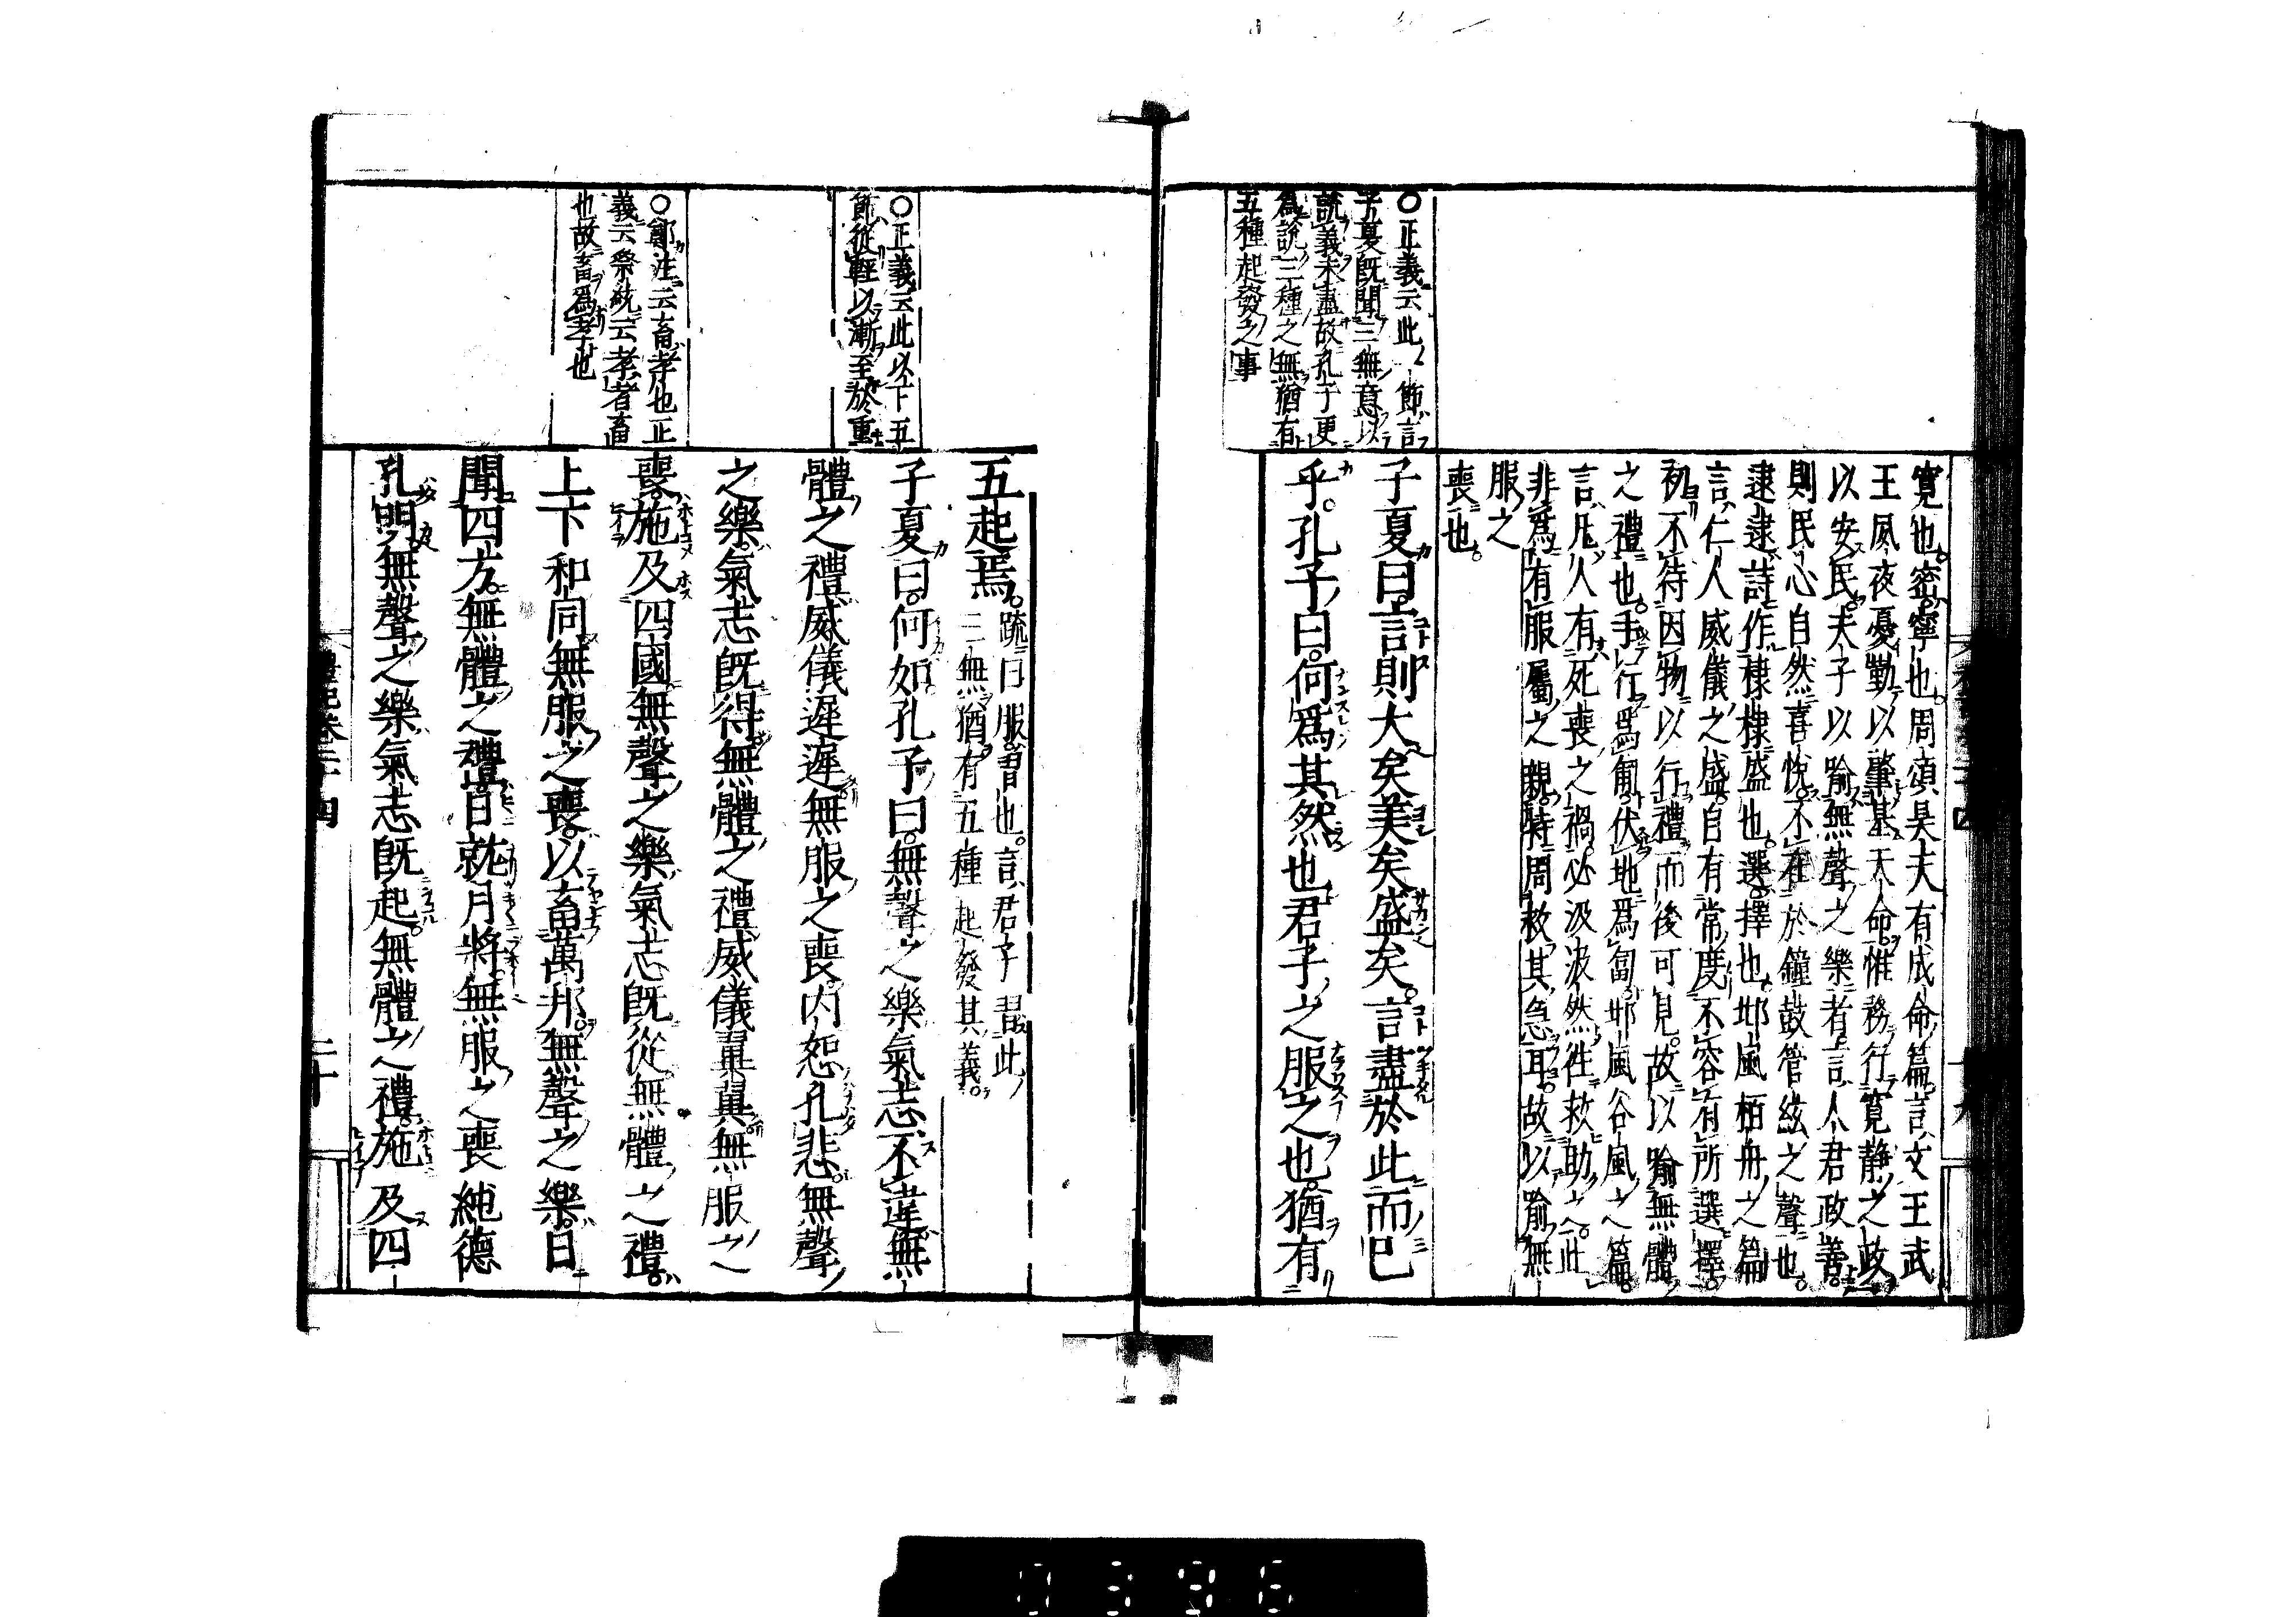 寬也密寧也周頌昊天有成命篇言文王武
王夙夜憂勤以肇基天命惟務行寬靜之政
以安民夫子以喻無聲之樂者言人君政善
則民心自然喜悅不在於鐘鼓管絃之聲也
逮逮詩作棣棣盛也選擇也邶風柏舟之篇
言仁人威儀之盛自有常度不容有所選擇
初不待因物以行禮而後可見故以喻無體
之禮也手行爲匍伏地爲匐邶風谷風之篇
言凡人有死喪之禍必汲汲然往救助之此
非爲有服屬之親特周救其急耳故以喻無
服之
喪也
〇正義云此一節言
子夏既聞三無意以
說義未盡故孔子更
爲說三種之無猶有
五種起發之事
子夏曰言則大矣美矣盛矣言盡於此而已
乎孔子曰何爲其然也君子之服之也猶有
五起焉疏曰服習也言君子習此
三無猶有五種起發其義
〇正義云此以下五
節從輕以漸至於重
子夏曰何如孔子曰無聲之樂氣志不違無
體之禮威儀遲遲無服之喪内恕孔悲無聲
之樂氣志既得無體之禮威儀翼翼無服之
〇鄭注云畜孝也正
義云祭統云孝者畜
也故畜爲孝也
喪施及四國無聲之樂氣志既從無體之禮
上下和同無服之喪以畜萬邦無聲之樂日
聞四方無體之禮日就月將無服之喪純德
孔明無聲之樂氣志既起無體之禮施及四
禮記卷二十四
二十
0396